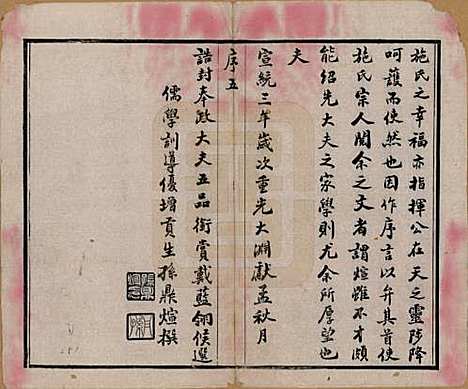 施氏之幸福亦指揮公在天之靈陟降
呵護而使然也因作序言以弁其首使
施氏宗人聞余之文者謂煊雖不才頗
能紹先大夫之家學則尤余所厚望也
夫
宣統三年歲次重光大淵獻孟秋月
序五
誥封奉政大夫五品銜賞戴藍翎候選
儒學訓導優增貢生孫鼎煊撰